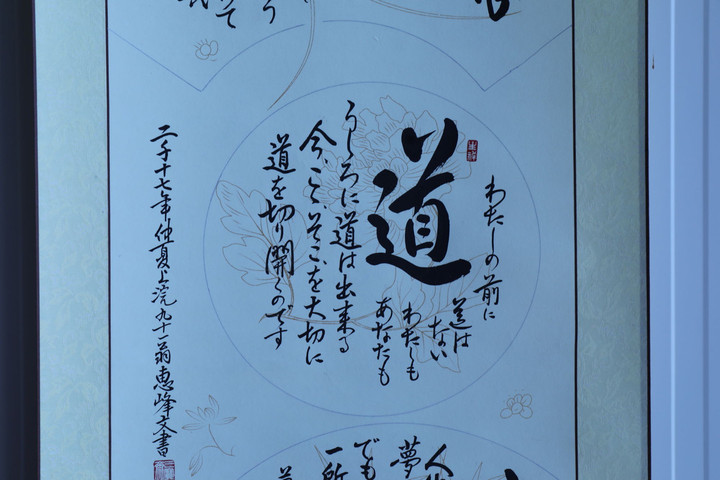 道
わたしの前に
道は
ない
わたしも
あなたも
うしろに道は出来る
今、こゝ、そこを大切に
道を切り開くのです
二千十七年仲夏上浣九十一翁恵峰文書
人生
夢
でも
一所